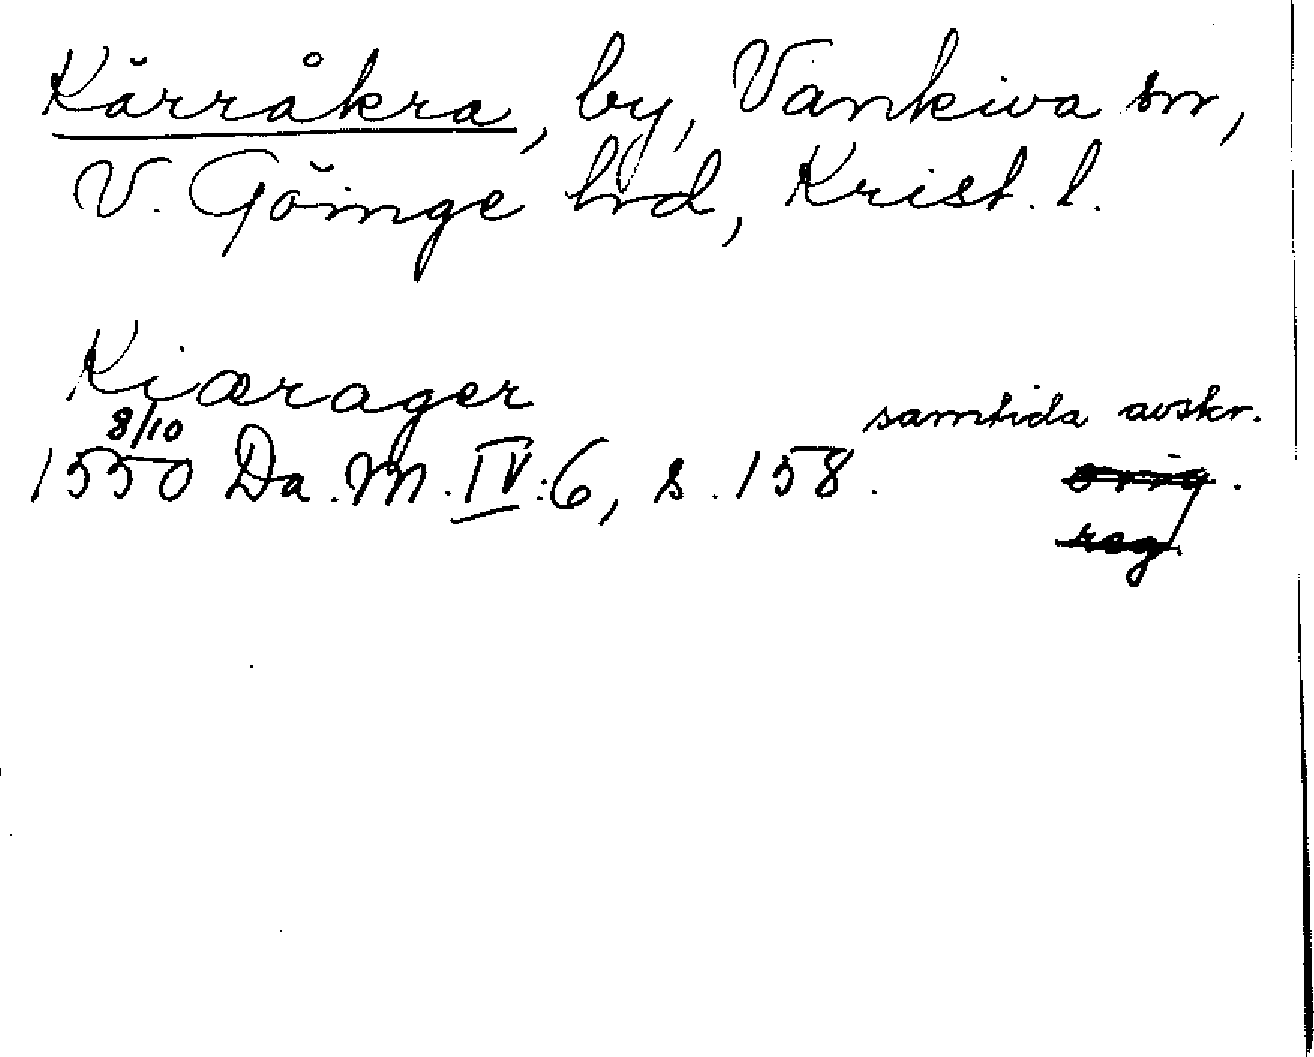 Kärråkra, by, Vankiva sn,
V. Göinge hrd, Krist. l.
Kiærager
8/10
1550 Da. M. IV:6, s. 158.
samtida avskr.
orig.
reg